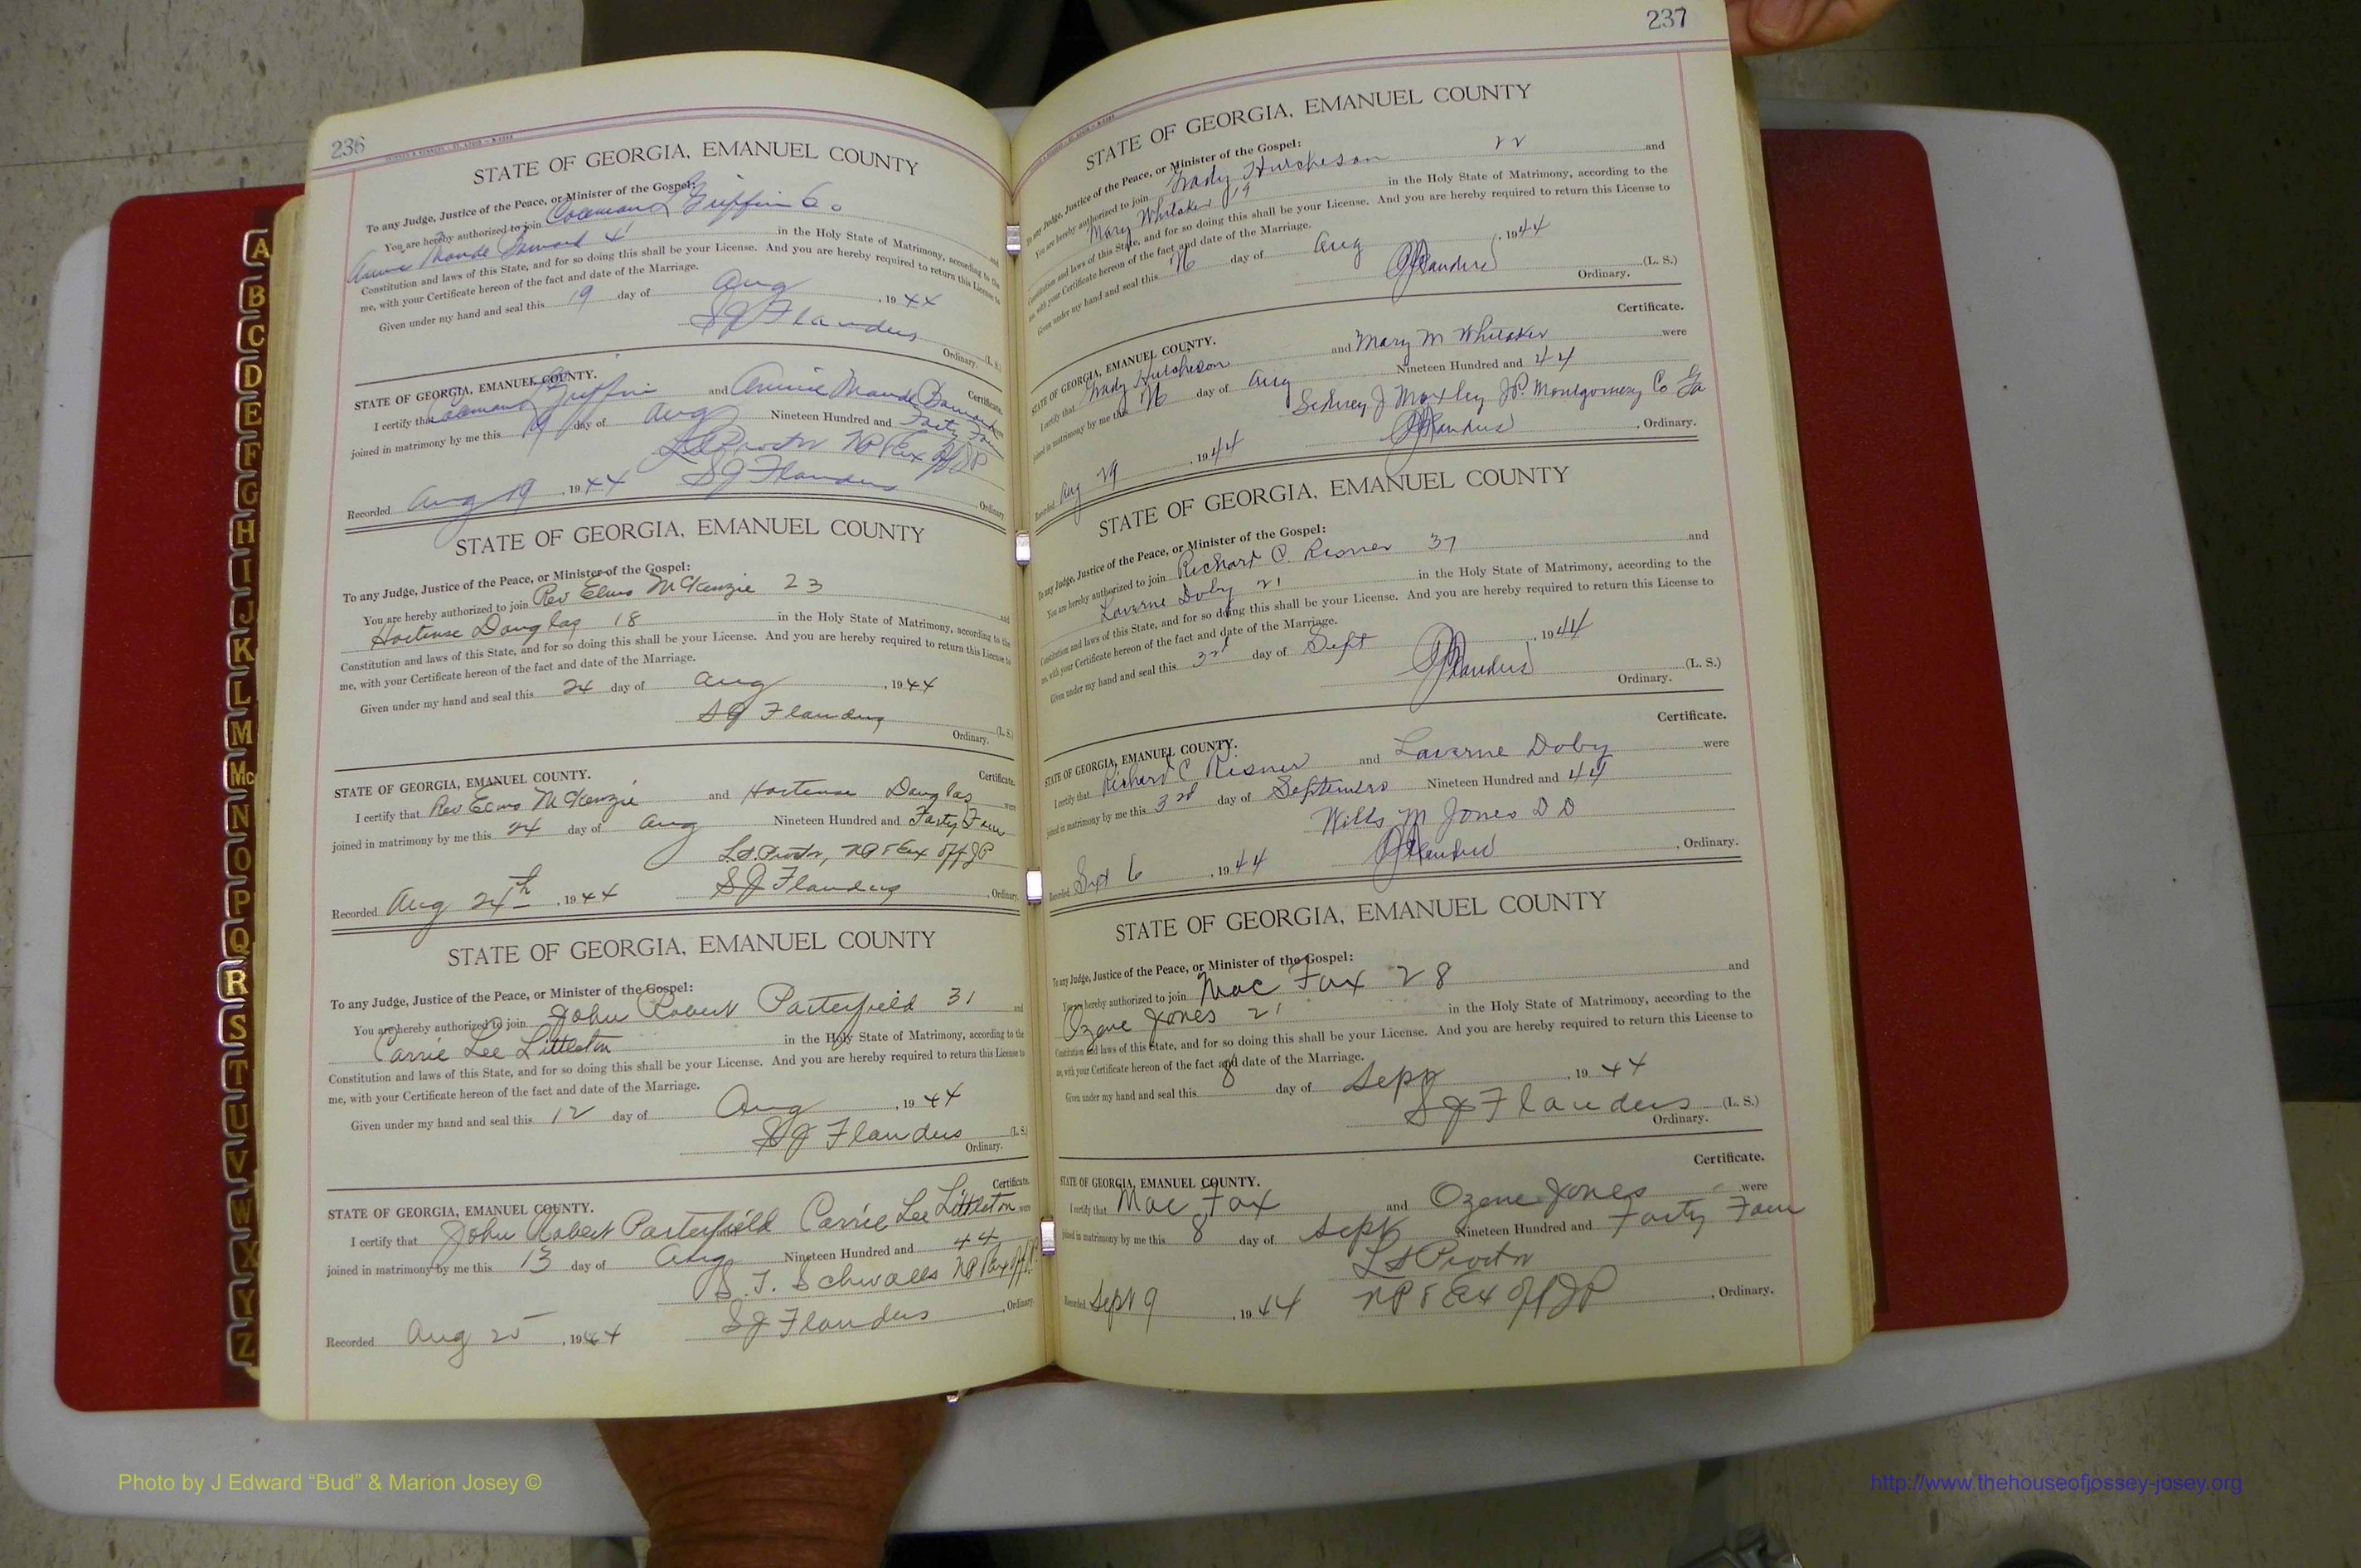 236
STATE OF GEORGIA, EMANUEL COUNTY
To any Judge, Justice of the Peace, or Minister of the Gospel:
You are hereby authorized to join Coleman L Griffin 60 and
Annie Maude 41 in the Holy State of Matrimony, according to the
Constitution and laws of this State, and for so doing this shall be your License. And you are hereby required to return this License to
me, with your Certificate hereon of the fact and date of the Marriage.
Given under my hand and seal this 19 day of Aug, 1944
SJ Flanders (L. S.)
Ordinary.
Certificate.
STATE OF GEORGIA, EMANUEL COUNTY.
I certify that Coleman L Griffin and Annie Maude
joined in matrimony by me this 19 day of Aug Nineteen Hundred and Forty Four
LS Proctor NP & Ex Off JP
Recorded Aug 19, 1944 SJ Flanders, Ordinary.
STATE OF GEORGIA, EMANUEL COUNTY
To any Judge, Justice of the Peace, or Minister of the Gospel:
You are hereby authorized to join Rev Elmo McKenzie 23 and
Hortense Douglas 18 in the Holy State of Matrimony, according to the
Constitution and laws of this State, and for so doing this shall be your License. And you are hereby required to return this License to
me, with your Certificate hereon of the fact and date of the Marriage.
Given under my hand and seal this 24 day of Aug, 1944
SJ Flanders (L. S.)
Ordinary.
Certificate.
STATE OF GEORGIA, EMANUEL COUNTY.
I certify that Rev Elmo McKenzie and Hortense Douglas were
joined in matrimony by me this 24 day of Aug Nineteen Hundred and Forty Four
LS Proctor, NP & Ex Off JP
Recorded Aug 24th, 1944 SJ Flanders, Ordinary.
STATE OF GEORGIA, EMANUEL COUNTY
To any Judge, Justice of the Peace, or Minister of the Gospel:
You are hereby authorized to join John Robert Porterfield 31 and
Carrie Lee Littleton in the Holy State of Matrimony, according to the
Constitution and laws of this State, and for so doing this shall be your License. And you are hereby required to return this License to
me, with your Certificate hereon of the fact and date of the Marriage.
Given under my hand and seal this 12 day of Aug, 1944
SJ Flanders (L. S.)
Ordinary.
Certificate.
STATE OF GEORGIA, EMANUEL COUNTY.
I certify that John Robert Porterfield Carrie Lee Littleton were
joined in matrimony by me this 13 day of Aug Nineteen Hundred and 44
S. T. Schwalls NP & Ex Off JP
Recorded Aug 25, 1944 SJ Flanders, Ordinary.
237
STATE OF GEORGIA, EMANUEL COUNTY
To any Judge, Justice of the Peace, or Minister of the Gospel:
You are hereby authorized to join Grady Hutcheson 22 and
Mary Whitaker 19 in the Holy State of Matrimony, according to the
Constitution and laws of this State, and for so doing this shall be your License. And you are hereby required to return this License to
me, with your Certificate hereon of the fact and date of the Marriage.
Given under my hand and seal this day of Aug, 1944
SJ Flanders (L. S.)
Ordinary.
Certificate.
STATE OF GEORGIA, EMANUEL COUNTY.
I certify that Grady Hutcheson and Mary M Whitaker were
joined in matrimony by me this day of Aug Nineteen Hundred and 44
J Moxley JP. Montgomery Co Ga
Recorded Aug 29, 1944 SJ Flanders, Ordinary.
STATE OF GEORGIA, EMANUEL COUNTY
To any Judge, Justice of the Peace, or Minister of the Gospel:
You are hereby authorized to join Richard C. Risner 37 and
Laverne Doby 21 in the Holy State of Matrimony, according to the
Constitution and laws of this State, and for so doing this shall be your License. And you are hereby required to return this License to
me, with your Certificate hereon of the fact and date of the Marriage.
Given under my hand and seal this 3rd day of Sept, 1944
SJ Flanders (L. S.)
Ordinary.
Certificate.
STATE OF GEORGIA, EMANUEL COUNTY.
I certify that Richard C Risner and Laverne Doby were
joined in matrimony by me this 3rd day of September Nineteen Hundred and 44
Wills M Jones D D
Recorded Sept 6, 1944 SJ Flanders, Ordinary.
STATE OF GEORGIA, EMANUEL COUNTY
To any Judge, Justice of the Peace, or Minister of the Gospel:
You are hereby authorized to join Mac Fox 28 and
Ozene Jones 21 in the Holy State of Matrimony, according to the
Constitution and laws of this State, and for so doing this shall be your License. And you are hereby required to return this License to
me, with your Certificate hereon of the fact and date of the Marriage.
Given under my hand and seal this 8 day of Sept, 1944
SJ Flanders (L. S.)
Ordinary.
Certificate.
STATE OF GEORGIA, EMANUEL COUNTY.
I certify that Mac Fox and Ozene Jones were
joined in matrimony by me this 8 day of Sept Nineteen Hundred and Forty Four
LS Proctor
Recorded Sept 9, 1944 NP & Ex Off JP, Ordinary.
A
B
C
D
E
F
G
H
I
J
K
L
M
Mc
N
O
P
Q
R
S
T
U
V
W
X
Y
Z
Photo by J Edward “Bud” & Marion Josey ©
http://www.thehouseofjossey-josey.org